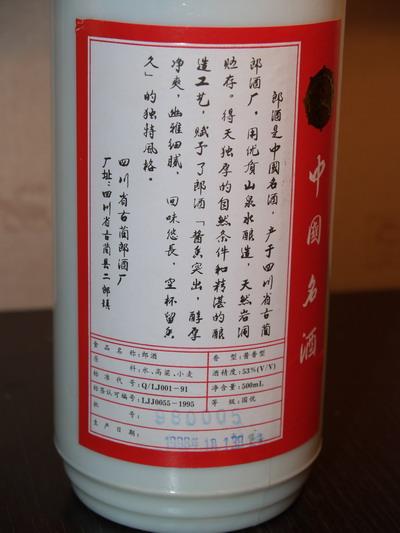 中國名酒
郎酒是中國名酒，产于四川省古蔺
郎酒厂，用优质山泉水酿造，天然岩洞
贮存。得天独厚的自然条件和精湛的酿
造工艺，赋予了郎酒「醬香突出，醇厚
净爽，幽雅细腻，回味悠長，空杯留香
久」的独特風格。
四川省古蔺郎酒厂
厂址：四川省古蔺县二郎镇
食品名称：郎酒 香型：酱香型
原料：水、高粱、小麦 酒精度：53%(V/V)
标准代号：Q/LJ001-91 净含量：500mL
标签认可编号：LJJ0055-1995 等级：国优
批号：980005
生产日期：